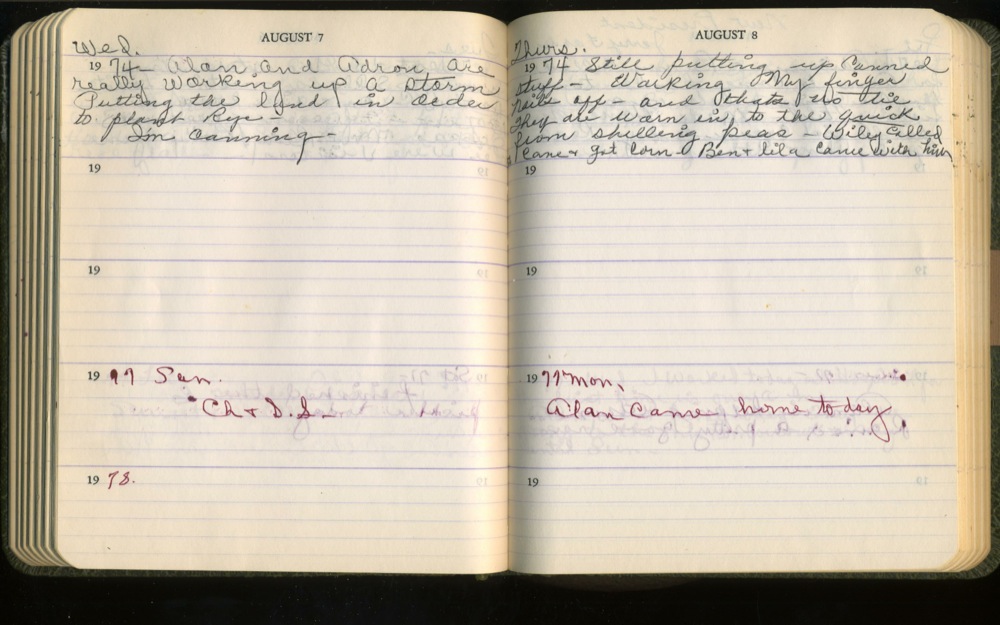 AUGUST 7
Wed.
1974 - Alan and Adron are
really working up a storm
Putting the land in order
to plant Rye -
Im canning -
19
19
1977 Sun.
Ch & D. S.
1978.
AUGUST 8
Thurs.
1974 Still putting up canned
stuff - Working My finger
nails off - and thats no lie
They are worn in to the quick
from shelling peas - Wiley called
Came & got corn - Ben & Lila came with him
19
19
1977 Mon,
Alan Came home today
19